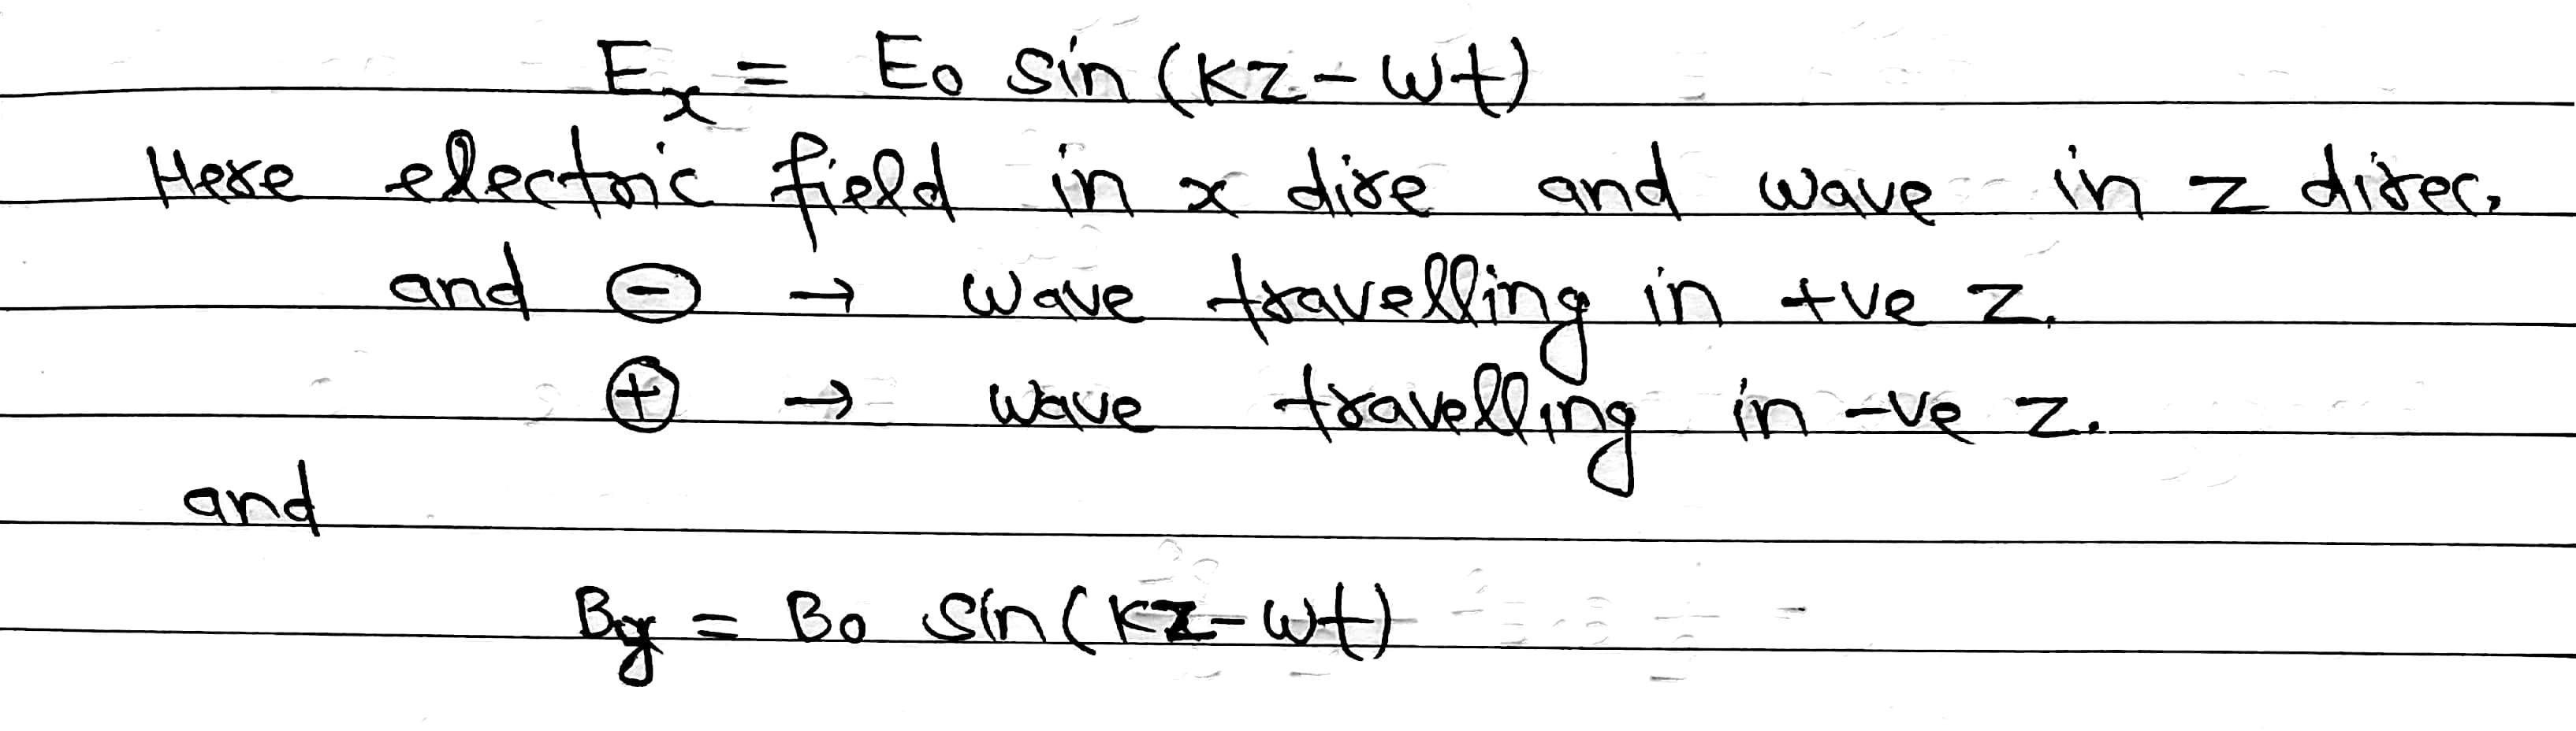 Ex = E0 sin (kz - ωt)
Here electric field in x dire and wave in z direc.
and ⊖ → wave travelling in +ve z.
⊕ → wave travelling in -ve z.
and
By = B0 sin (kz - ωt)